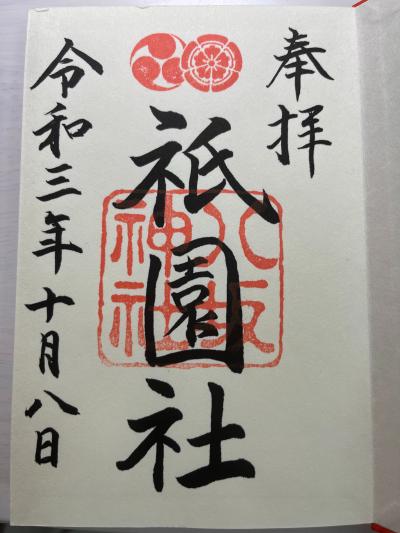 奉拝
祇園社
八坂
神社
令和三年十月八日